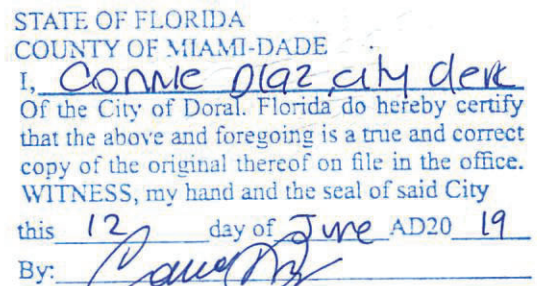 STATE OF FLORIDA
COUNTY OF MIAMI-DADE
I, Connie Diaz, city clerk
Of the City of Doral. Florida do hereby certify
that the above and foregoing is a true and correct
copy of the original thereof on file in the office.
WITNESS, my hand and the seal of said City
this 12 day of June AD20 19
By: